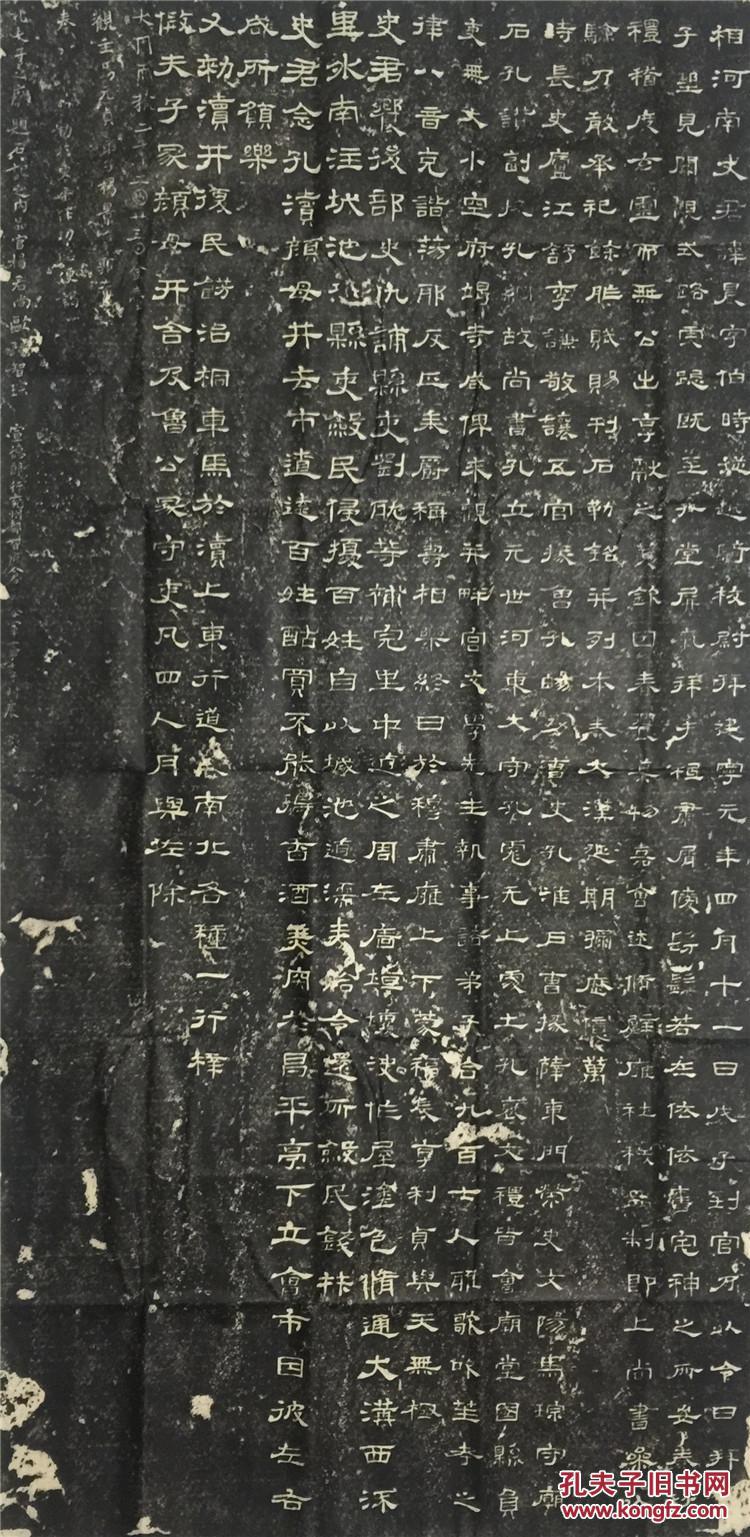 相河南史君諱晨字伯時從越騎校尉拜建寧元年四月十一日戊子到官乃以令日拜
子望見闕觀式路虔跽既至升堂屏氣拜手祗肅屑僾髣髴若在依依舊宅神之所安春
禮稽度玄靈而無公出享獻之薦欽因春饗導物嘉會述脩璧廱社稷品制即上尚書參
驗乃敢承祀餘胙賦賜刊石勒銘并列本奏大漢延期彌歷億萬
時長史廬江舒李謙敬讓五官掾魯孔暘功曹史孔淮戶曹掾薛東門榮史文陽馬琮守廟
石孔讚副掾孔綱故尚書孔立元世河東大守孔彪元上處土孔褒文禮皆會廟堂國縣員
吏無大小空府竭寺咸俾來觀并畔宮文學先生執事諸弟子合九百七人雅歌吹笙考之
律八音克諧蕩邪反正奉爵稱壽相樂終日於穆肅雍上下蒙福長享利貞與天無極
史君饗後部史仇誧縣吏劉耽等補完里中道之周左廧垣壞決作屋塗色脩通大溝西流
里外南注城池恐縣吏斂民侵擾百姓自以城池道濡麥給令還所斂民錢材
史君念孔瀆顏母井去市遼遠百姓酤買不能得香酒美肉於昌平亭下立會市因彼左右
咸所願樂
又勑瀆井復民餝治桐車馬於瀆上東行道表南北各種一行梓
假夫子冢顏母井舍及魯公冢守吏凡四人月與佐除
大周天授二年二月廿三日金
觀主馬元貞弟子楊景
奉 勑於東岳作功德便謁
孔夫子之廟題石記之內品官楊君尚歐 智琮 宣德郎行兗州都督府倉
孔夫子旧书网
www.kongfz.com